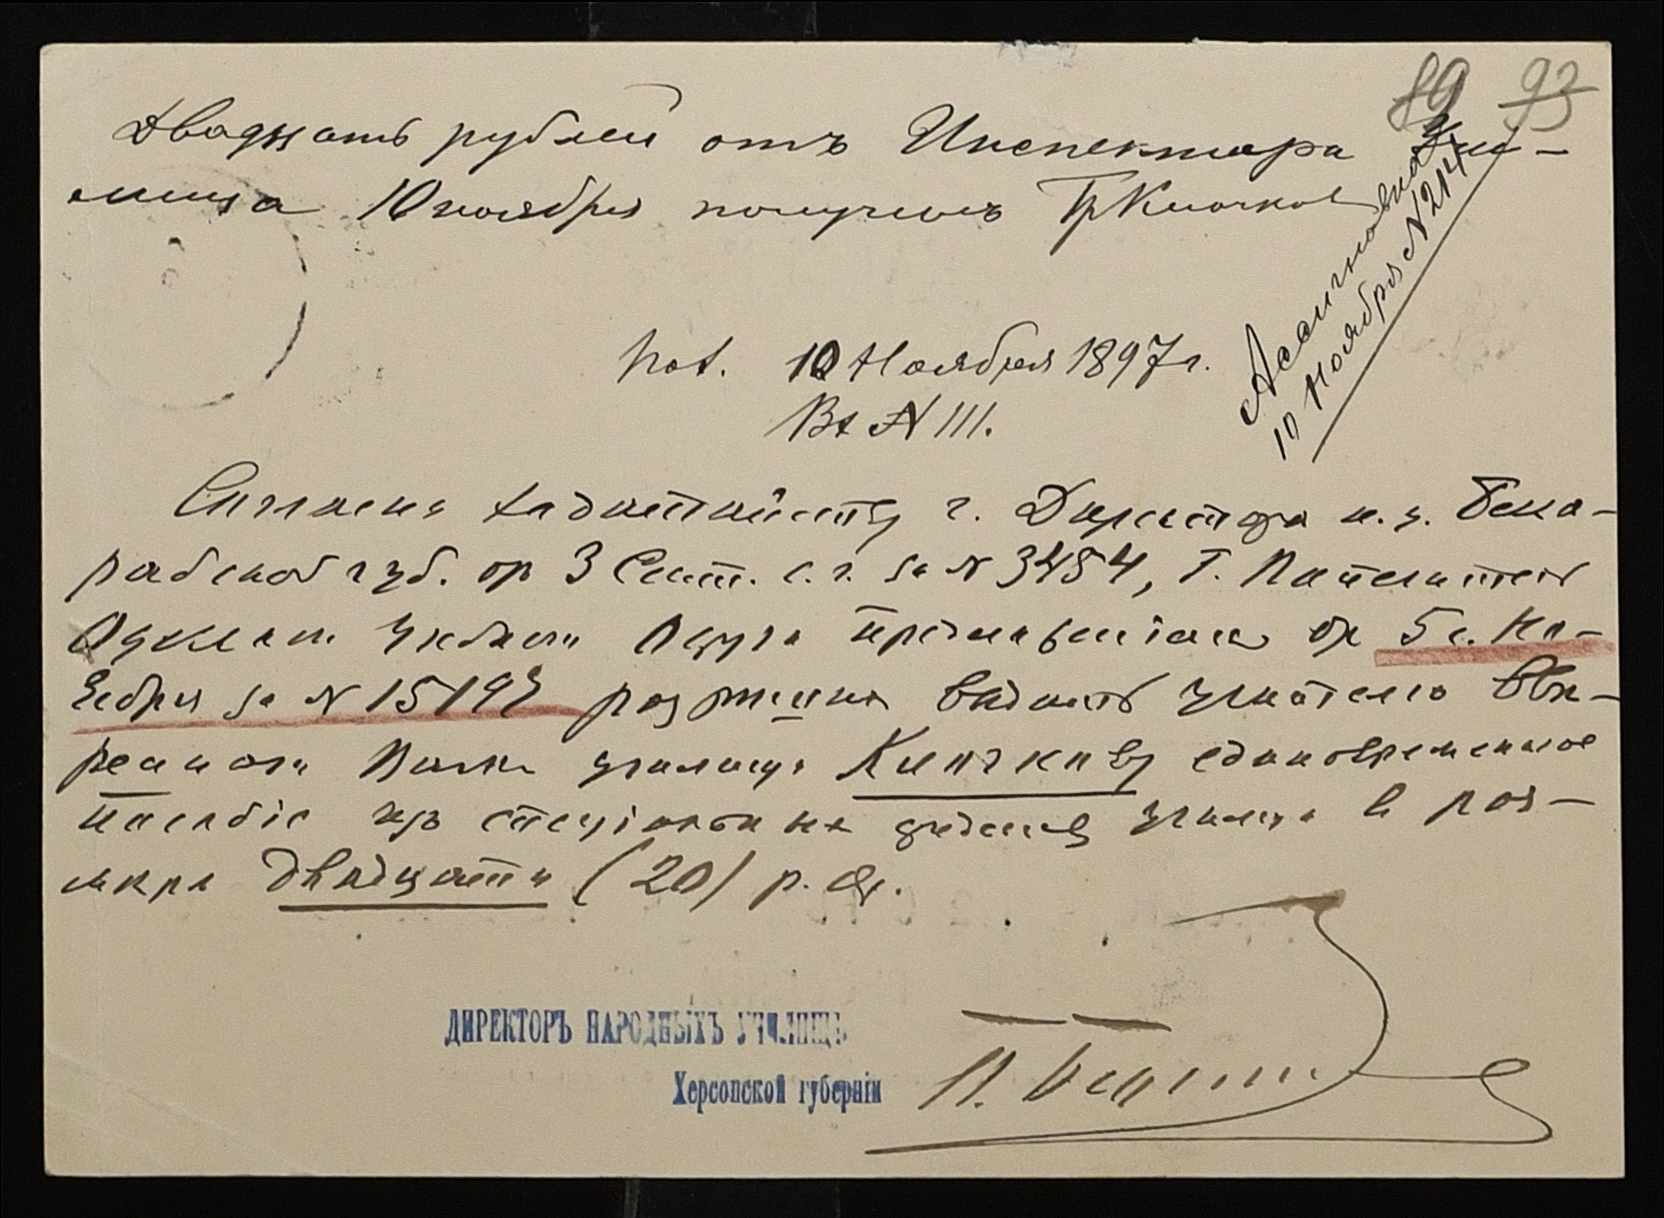 89 93
Двадцать рублей отъ Инспектора Учи-
лища 10 ноября получилъ Гр Клочков
Ассигновка
10 Ноября № 214
Пол. 10 Ноября 1897 г.
Вх № 111.
Согласно ходатайству г. Директора н. у. Бесса-
рабской губ. от 3 Сент. с. г. за № 3484, Г. Попечитель
Учебнаго Округа предложеніемъ от 5 с. Но-
ября за № 15193 разрѣшилъ выдать учителю Евр-
училища Клочкову единовременное
пособіе изъ спеціальныхъ средствъ училища в раз-
мѣрѣ двадцати (20) р. с.
ДИРЕКТОРЪ НАРОДНЫХЪ УЧИЛИЩЪ
Херсонской губерніи